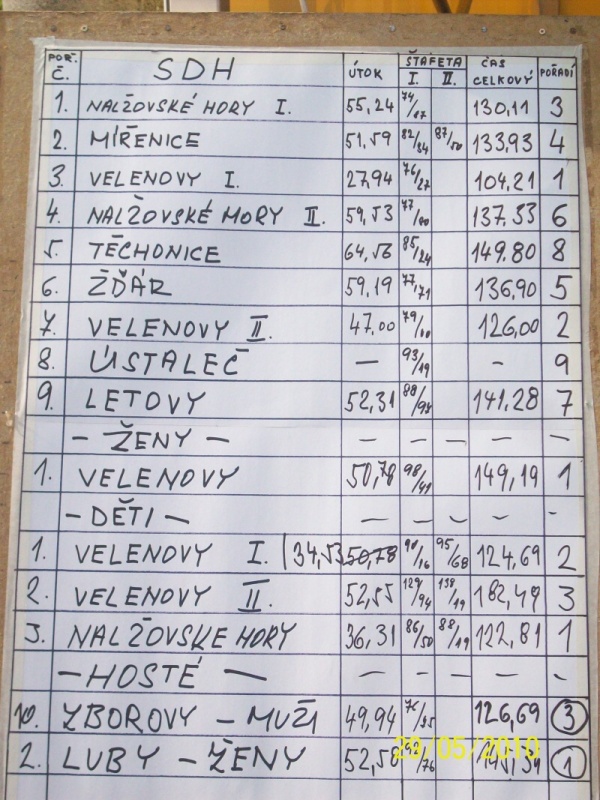 POŘ. Č. SDH ÚTOK ŠTAFETA I. II. ČAS CELKOVÝ POŘADÍ
1. NALŽOVSKÉ HORY I. 55,24 74/87 130,11 3
2. MÍŘENICE 51,59 82/34 87/50 133,93 4
3. VELENOVY I. 27,94 76/27 104,21 1
4. NALŽOVSKÉ HORY II. 59,53 77/80 137,33 6
5. TĚCHONICE 64,56 85/24 149.80 8
6. ŽĎÁR 59,19 77/71 136,90 5
7. VELENOVY II. 47,00 79/00 126,00 2
8. ÚSTALEČ — 93/19 - 9
9. LETOVY 52,31 88/98 141,28 7
- ŽENY - — — — — —
1. VELENOVY 50,78 98/41 149,19 1
- DĚTI - — — — — -
1. VELENOVY I. 34,53 50,78 90/16 95/68 124,69 2
2. VELENOVY II. 52,55 129/94 138/19 182,49 3
3. NALŽOVSKE HORY 36,31 86/50 88/19 122,81 1
- HOSTÉ — — — — — -
10. ZBOROVY - MUŽI 49,94 126,69 3
2. LUBY - ŽENY 52,58 92/76 1
29/05/2010